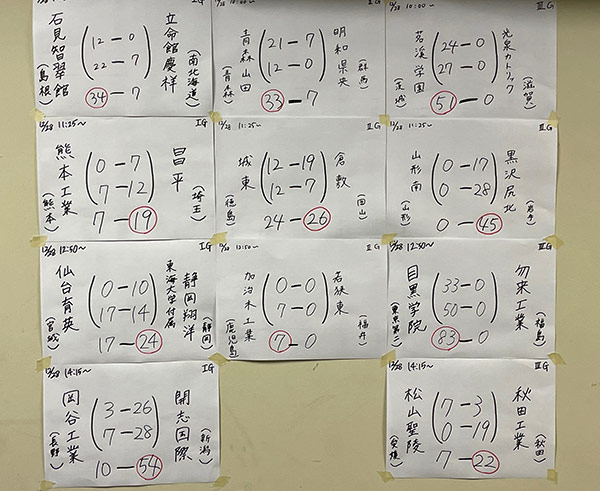 12/28 10:00~ IG
石見智翠館
(島根)
12-0
22-7
34-7
立命館慶祥
(南北海道)
12/28 10:00~ ⅡG
青森山田
(青森)
21-7
12-0
33-7
明和県央
(群馬)
12/28 10:00~ ⅢG
茗溪学園
(茨城)
24-0
27-0
51-0
光泉カトリック
(滋賀)
12/28 11:25~ IG
熊本工業
(熊本)
0-7
7-12
7-19
昌平
(埼玉)
12/28 11:25~ ⅡG
城東
(徳島)
12-19
12-7
24-26
倉敷
(岡山)
12/28 11:25~ ⅢG
山形南
(山形)
0-17
0-28
0-45
黒沢尻北
(岩手)
12/28 12:50~ IG
仙台育英
(宮城)
0-10
17-14
17-24
東海大学付属
静岡翔洋
(静岡)
12/28 12:50~ ⅡG
加治木工業
(鹿児島)
0-0
7-0
7-0
若狭東
(福井)
12/28 12:50~ ⅢG
目黒学院
(東京第二)
33-0
50-0
83-0
勿来工業
(福島)
12/28 14:15~ IG
岡谷工業
(長野)
3-26
7-28
10-54
開志国際
(新潟)
12/28 14:15~ ⅢG
松山聖陵
(愛媛)
7-3
0-19
7-22
秋田工業
(秋田)